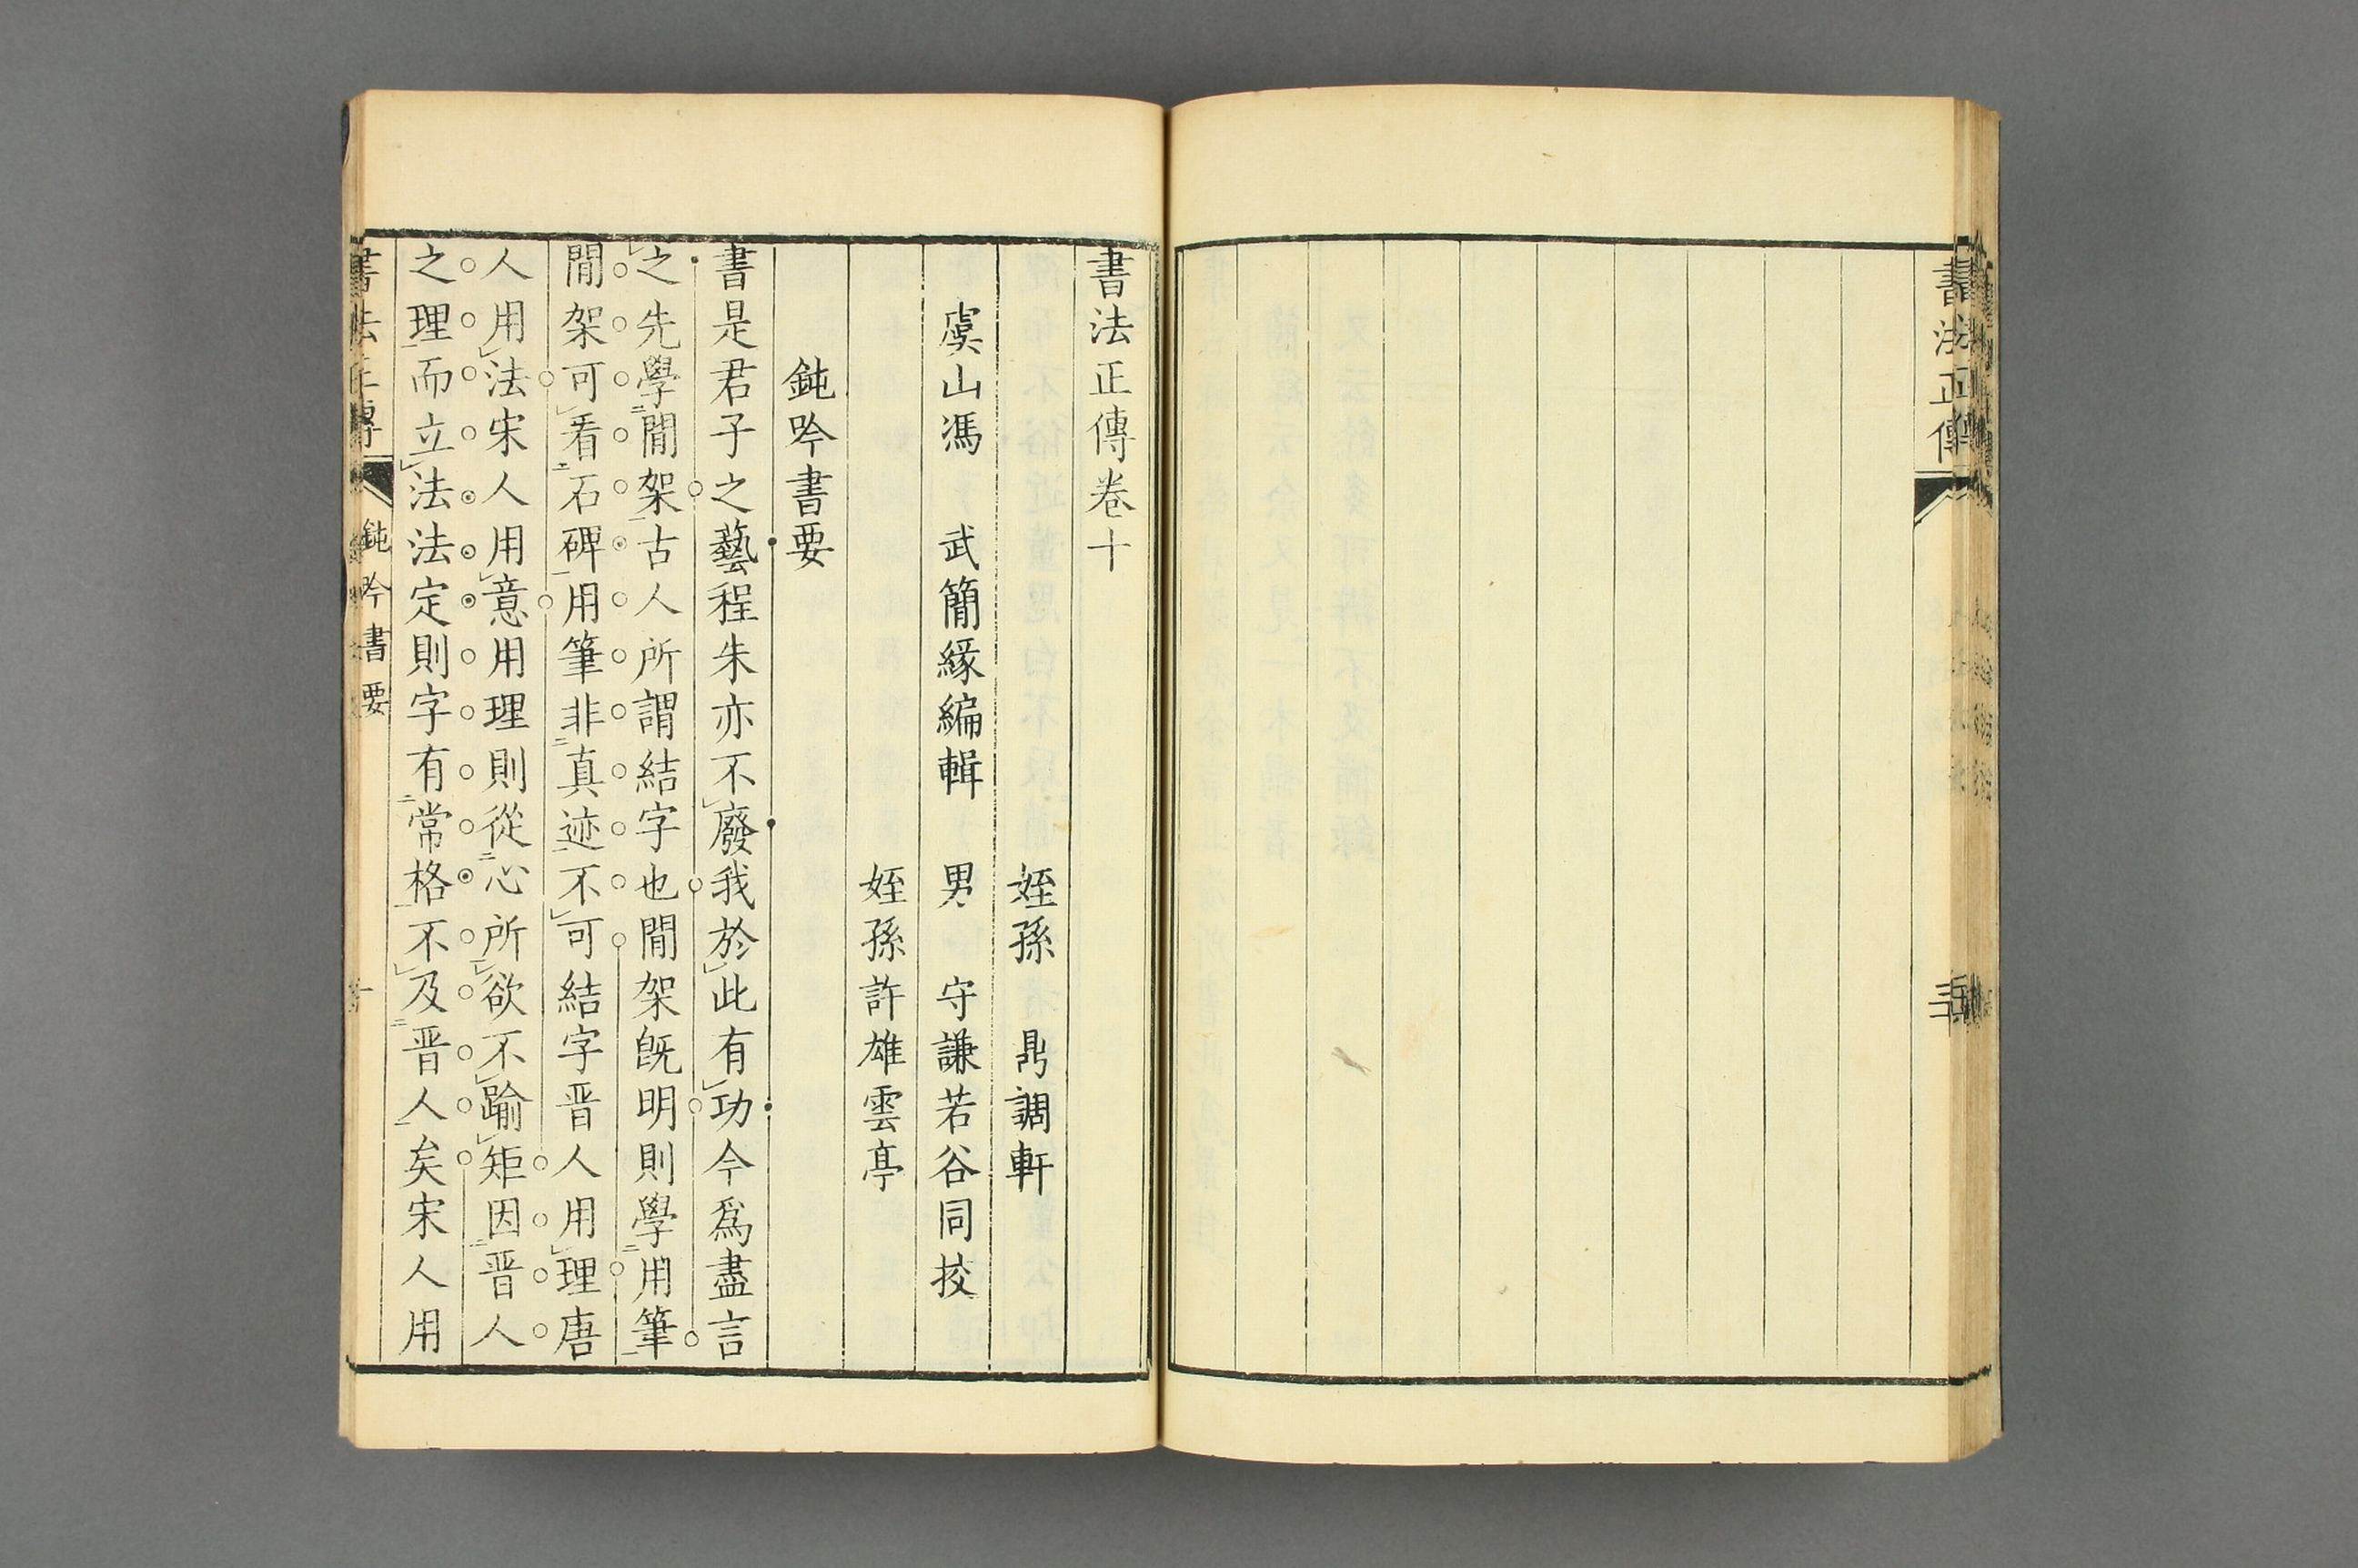 書法正傳
書法正傳卷十
姪孫 鼎調軒
虞山馮 武簡緣編輯 男 守謙若谷同挍
姪孫許雄雲亭
鈍吟書要
書是君子之藝程朱亦不廢我於此有功今爲盡言
之先學閒架古人所謂結字也閒架旣明則學用筆
閒架可看石碑用筆非真迹不可結字晋人用理唐
人用法宋人用意用理則從心所欲不踰矩因晋人
之理而立法法定則字有常格不及晋人矣宋人用
書法正傳 鈍吟書要